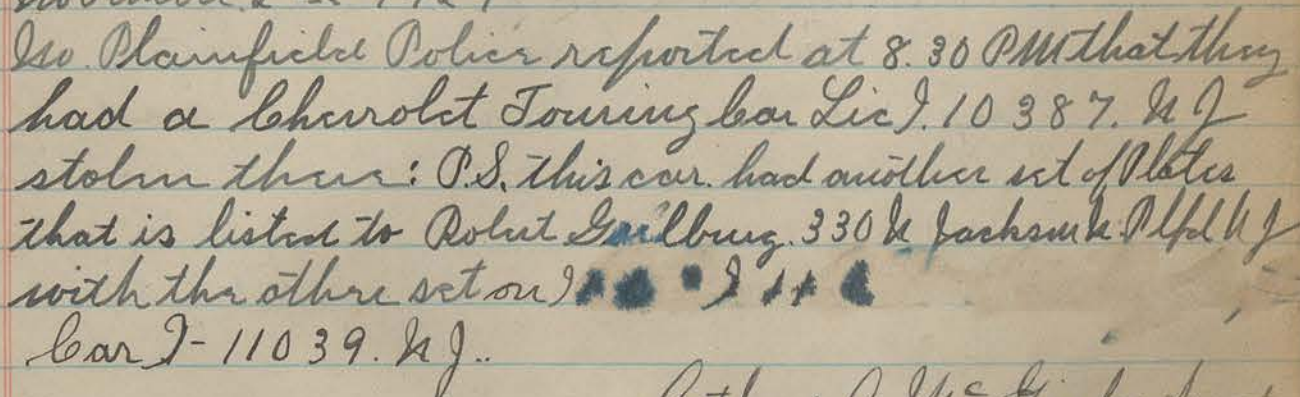 So. Plainfield Police reported at 8.30 PM that they
had a Chevrolet Touring Car Lic I. 10387. N J
stolen there: P.S. this car. had another set of Plates
that is listed to Robert 330 N Jackson Plfd N J
with the other set on
Car I-11039. N J..